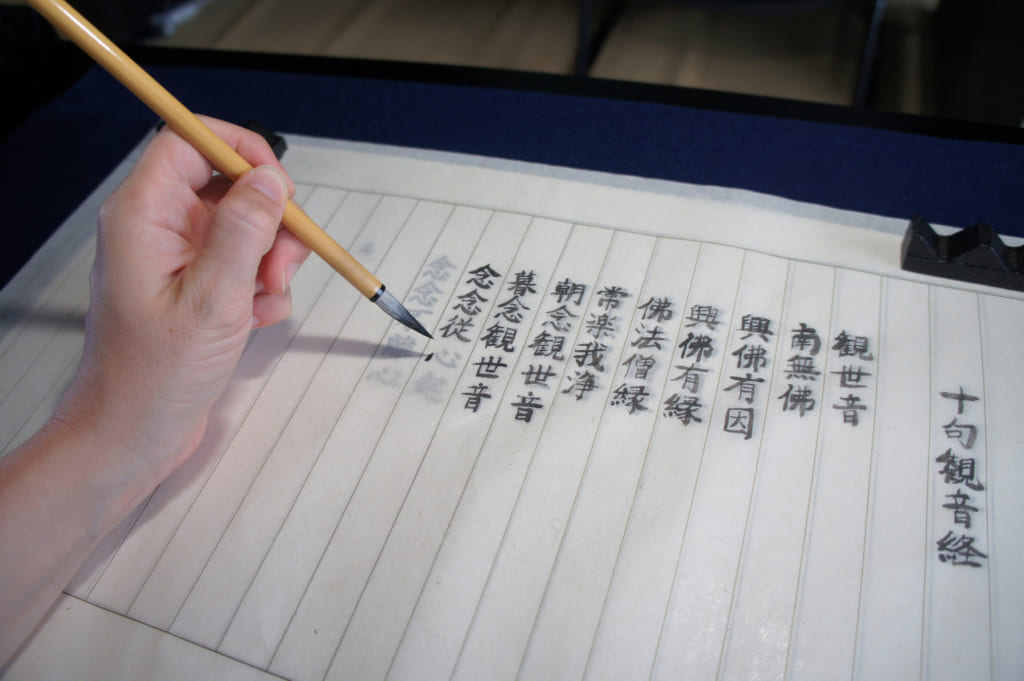 十句観音経
観世音
南無佛
興佛有因
興佛有縁
佛法僧縁
常楽我浄
朝念観世音
暮念観世音
念念従